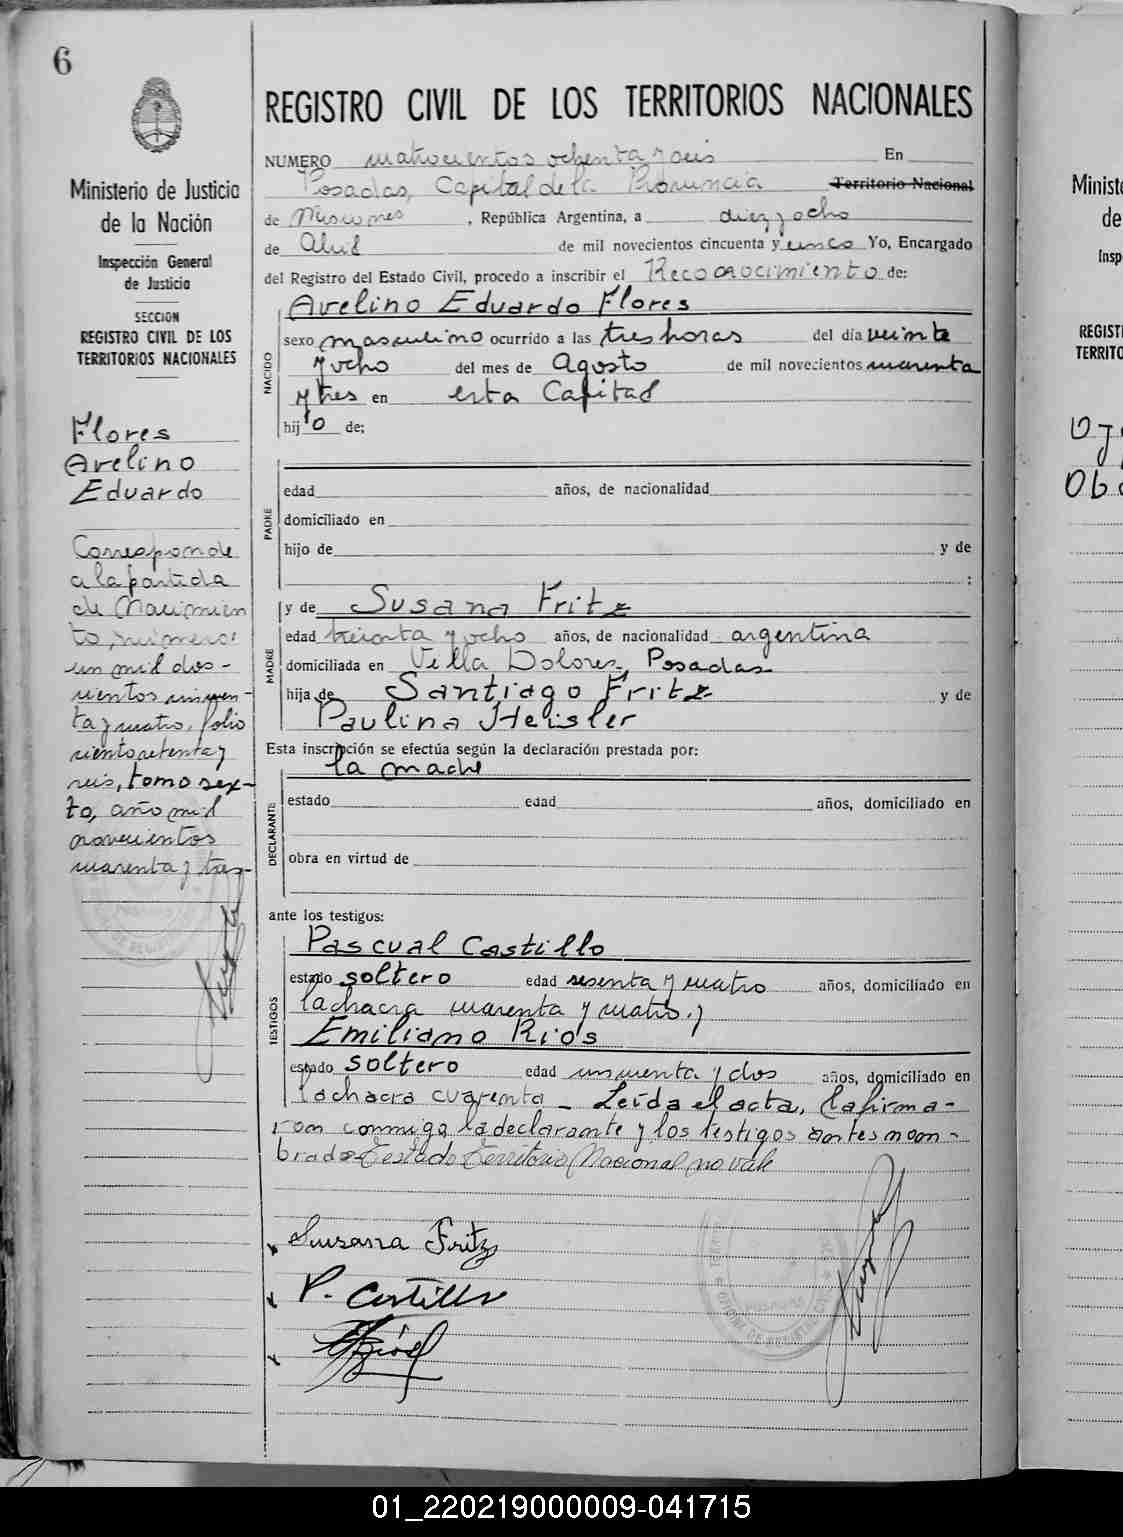 6
Ministerio de Justicia
de la Nación
Inspección General
de Justicia
SECCION
REGISTRO CIVIL DE LOS
TERRITORIOS NACIONALES
Flores
Avelino
Eduardo
Corresponde
a la partida
de Nacimien
to, número:
un mil dos-
cientos cincuen-
ta y cuatro, folio
ciento setenta y
seis, tomo sex-
to, año mil
novecientos
cuarenta y tres-
REGISTRO CIVIL DE LOS TERRITORIOS NACIONALES
NUMERO cuatrocientos ochenta y seis En
Posadas, Capital de la Provincia Territorio Nacional
de Misiones, República Argentina, a diez y ocho
de Abril de mil novecientos cincuenta y cinco Yo, Encargado
del Registro del Estado Civil, procedo a inscribir el Reconocimiento de:
NACIDO
Avelino Eduardo Flores
sexo masculino ocurrido a las tres horas del día veinte
y ocho del mes de Agosto de mil novecientos cuarenta
y tres en esta Capital
hijo de:
PADRE
edad años, de nacionalidad
domiciliado en
hijo de y de
:
MADRE
y de Susana Fritz
edad treinta y ocho años, de nacionalidad argentina
domiciliada en Villa Dolores, Posadas
hija de Santiago Fritz y de
Paulina Heisler
Esta inscripción se efectúa según la declaración prestada por:
la madre
DECLARANTE
estado edad años, domiciliado en
obra en virtud de
ante los testigos:
TESTIGOS
Pascual Castillo
estado soltero edad sesenta y cuatro años, domiciliado en
la chacra cuarenta y cuatro. y
Emiliano Rios
estado soltero edad cincuenta y dos años, domiciliado en
la chacra cuarenta - Leída el acta, la firma-
ron conmigo la declarante y los testigos antes nom-
brados Testado Territorio Nacional no vale
Susana Fritz
P. Castillo
POSADAS
01_220219000009-041715
Minist
de
Insp
REGIST
TERRITO